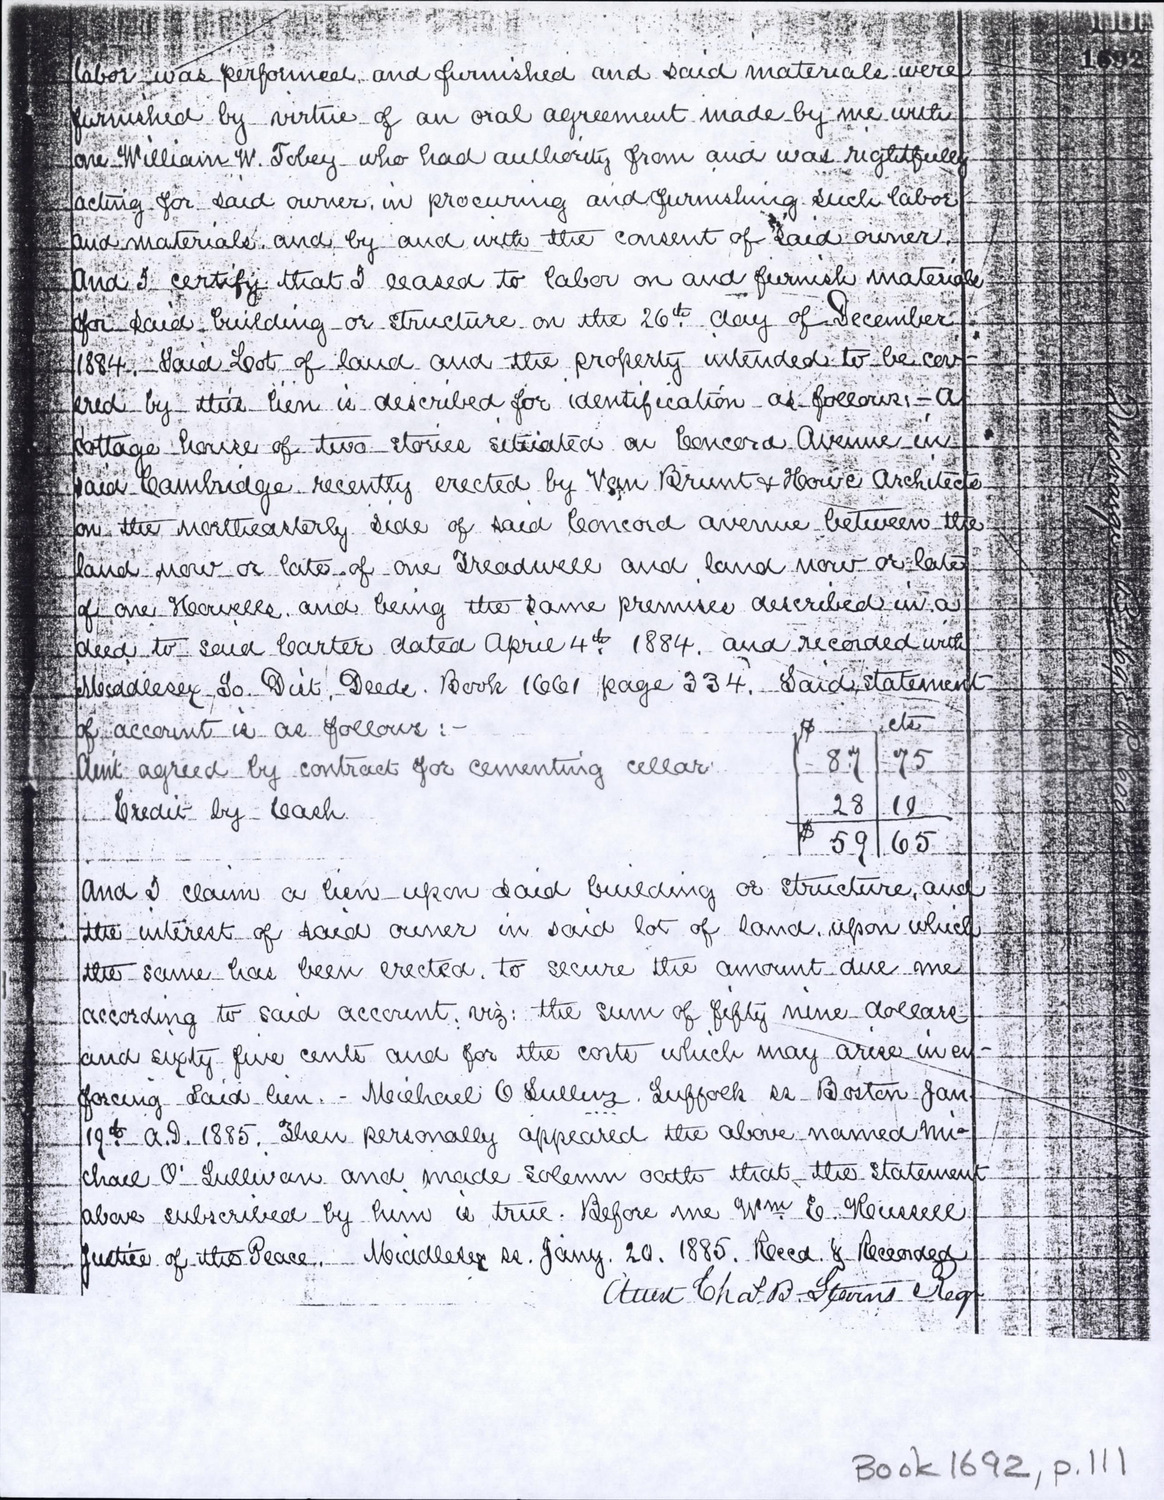 111
1692
labor was performed, and furnished and said materials were
furnished by virtue of an oral agreement made by me with
one William W. Tobey who had authority from and was rightfully
acting for said owner, in procuring and furnishing such labor
and materials, and by and with the consent of said owner.
And I certify that I ceased to labor on and furnish materials
for said building or structure on the 26th day of December
1884. Said Lot of land and the property intended to be cov-
ered by this lien is described for identification as follows:- A
cottage house of two stories situated on Concord Avenue in
said Cambridge recently erected by Van Brunt & Howe Architects
on the northeasterly side of said Concord avenue between the
land now or late of one Treadwell and land now or late
of one Howells, and being the same premises described in a
deed to said Carter dated April 4th 1884, and recorded with
Middlesex So. Dist. Deeds. Book 1661 page 334. Said statement
of account is as follows:-
$ cts
Amt agreed by contract for cementing cellar 87 75
Credit by Cash 28 10
$ 59 65
And I claim a lien upon said building or structure, and
the interest of said owner in said lot of land, upon which
the same has been erected, to secure the amount due me
according to said account, viz: the sum of fifty nine dollars
and sixty five cents and for the costs which may arise in en-
forcing said lien. - Michael O Sullivan. Suffolk ss. Boston Jan.
19th A.D. 1885. Then personally appeared the above named Mi-
chael O'Sullivan and made solemn oath that the statement
above subscribed by him is true. Before me Wm E. Russell
Justice of the Peace. Middlesex ss. Jany. 20. 1885. Recd. & Recorded
Attest Chas. B. Stevens Reg.
Discharge
Book 1692, p.111